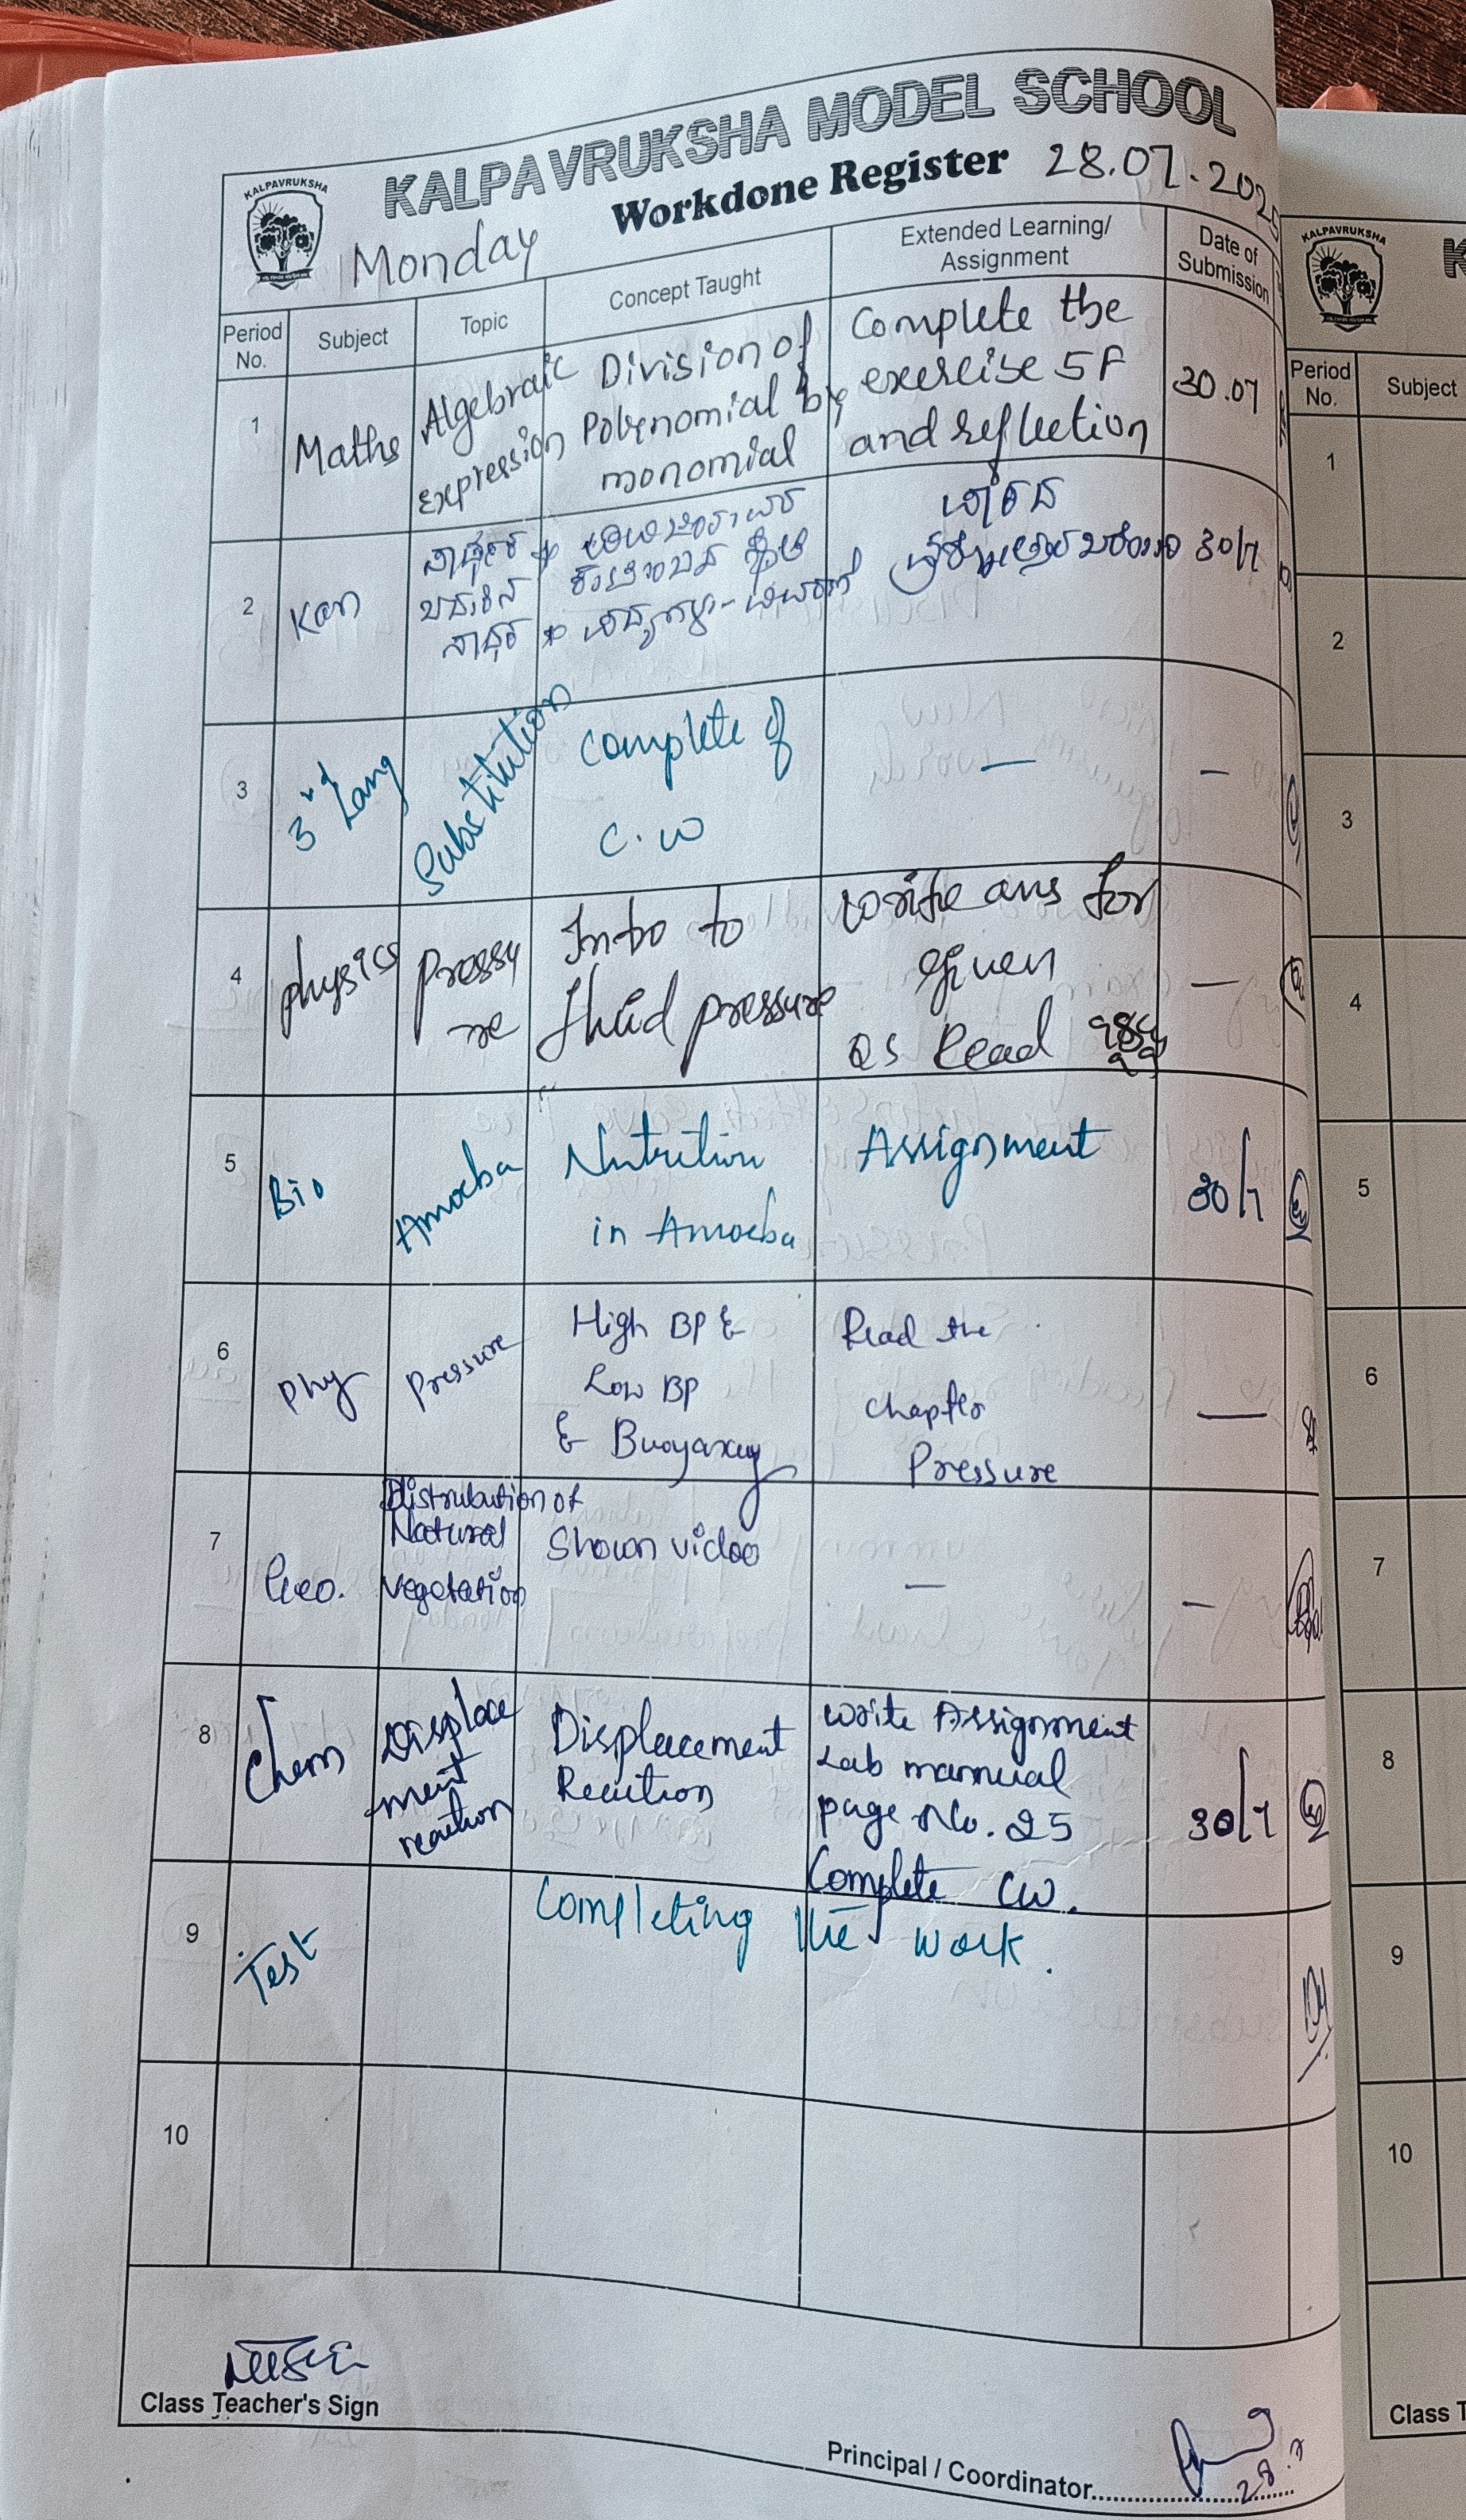 KALPAVRUKSHA MODEL SCHOOL
KALPAVRUKSHA
Workdone Register 28.07.2025
Monday
Period No.
Subject
Topic
Concept Taught
Extended Learning/ Assignment
Date of Submission
1
Maths
Algebraic
expression
Division of
Polynomial by
monomial
Complete the
exercise 5F
and reflection
30.07
2
Kan
30/7
3
3rd Lang
Substitution
Complete of
C.W
—
—
4
physics
pressu
re
Intro to
fluid pressure
write ans for
given
QS Read
—
5
Bio
Amoeba
Nutrition
in Amoeba
Assignment
30/7
6
Phy
Pressure
High BP &
Low BP
& Buoyancy
Read the
chapter
Pressure
—
7
Geo.
Distribution of
Natural
Vegetation
Shown video
—
—
8
Chem
Displace
ment
reaction
Displacement
Reaction
write Assignment
Lab mannual
page No. 25
Complete CW.
30/7
9
Test
Completing the work.
10
Class Teacher's Sign
Principal / Coordinator
28.7
KALPAVRUKSHA
K
Period No.
Subject
1
2
3
4
5
6
7
8
9
10
Class T